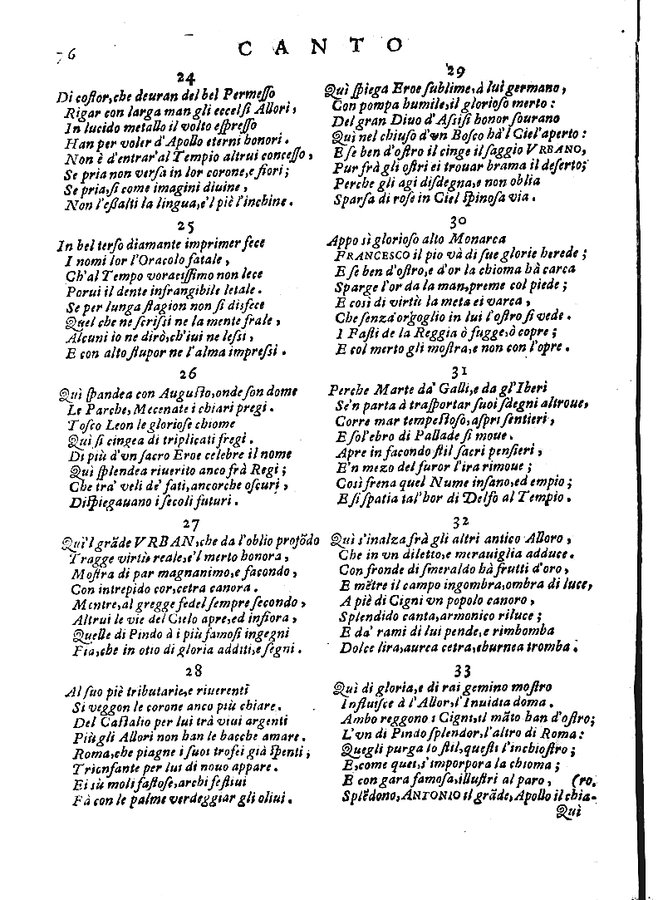 76
CANTO
24
Di costor, che deuran del bel Permesso
Rigar con larga man gli eccelsi Allori,
In lucido metallo il volto espresso
Han per voler d'Apollo eterni honori.
Non è d'entrar'al Tempio altrui concesso,
Se pria non versa in lor corone, e fiori;
Se pria, sì come imagini diuine,
Non l'essalti la lingua, e'l piè l'inchine.
25
In bel terso diamante imprimer fece
I nomi lor l'Oracolo fatale,
Ch'al Tempo voracissimo non lece
Porui il dente infrangibile letale.
Se per lunga stagion non si disfece
Quel che ne scrissi ne la mente frale,
Alcuni io ne dirò, ch'iui ne lessi,
E con alto stupor ne l'alma impressi.
26
Quì spandea con Augusto, onde son dome
Le Parche, Mecenate i chiari pregi.
Tosco Leon le gloriose chiome
Quì si cingea di triplicati fregi.
Di più d'vn sacro Eroe celebre il nome
Quì splendea riuerito anco frà Regi;
Che trà veli de' fati, ancorche oscuri,
Dispiegauano i secoli futuri.
27
Quì'l grāde VRBAN, che da l'oblio profōdo
Tragge virtù reale, e'l merto honora,
Mostra di par magnanimo, e facondo,
Con intrepido cor, cetra canora.
Mentre, al gregge fedel sempre secondo,
Altrui le vie del Cielo apre, ed infiora,
Quelle di Pindo à i più famosi ingegni
Fia, che in otio di gloria additi, e segni.
28
Al suo piè tributarie, e riuerenti
Si veggon le corone anco più chiare.
Del Castalio per lui trà viui argenti
Più gli Allori non han le bacche amare.
Roma, che piagne i suoi trofei già spenti;
Trionfante per lui di nouo appare.
Ei sù moli fastose, archi festiui
Fà con le palme verdeggiar gli oliui.
29
Quì spiega Eroe sublime, à lui germano,
Con pompa humile, il glorioso merto:
Del gran Diuo d'Assisi honor sourano
Quì nel chiuso d'vn Bosco hà'l Ciel'aperto:
E se ben d'ostro il cinge il saggio VRBANO,
Pur frà gli ostri ei trouar brama il deserto;
Perche gli agi disdegna, e non oblia
Sparsa di rose in Ciel spinosa via.
30
Appo sì glorioso alto Monarca
FRANCESCO il pio và di sue glorie herede;
E se ben d'ostro, e d'or la chioma hà carca
Sparge l'or da la man, preme col piede;
E così di virtù la meta ei varca,
Che senz'orgoglio in lui l'ostro si vede.
I Fasti de la Reggia ò fugge, ò copre;
E col merto gli mostra, e non con l'opre.
31
Perche Marte da' Galli, e da gl'Iberi
Se'n parta à trasportar suoi sdegni altroue,
Corre mar tempestoso, aspri sentieri,
E sol'ebro di Pallade si moue.
Apre in facondo stil sacri pensieri,
E'n mezo del furor l'ira rimoue;
Così frena quel Nume insano, ed empio;
E si spatia tal'hor di Delfo al Tempio.
32
Quì s'inalza frà gli altri antico Alloro,
Che in vn diletto, e merauiglia adduce.
Con fronde di smeraldo hà frutti d'oro,
E mētre il campo ingombra, ombra di luce,
A piè di Cigni vn popolo canoro,
Splendido canta, armonico riluce;
E da' rami di lui pende, e rimbomba
Dolce lira, aurea cetra, eburnea tromba.
33
Quì di gloria, e di rai gemino mostro
Influisce à l'Allor, l'Inuidia doma.
Ambo reggono i Cigni, il māto han d'ostro;
L'vn di Pindo splendor, l'altro di Roma:
Quegli purga lo stil, questi l'inchiostro;
E, come quei, s'imporpora la chioma;
E con gara famosa, illustri al paro, (ro.
Splēdono, ANTONIO il grāde, Apollo il chia-
Quì